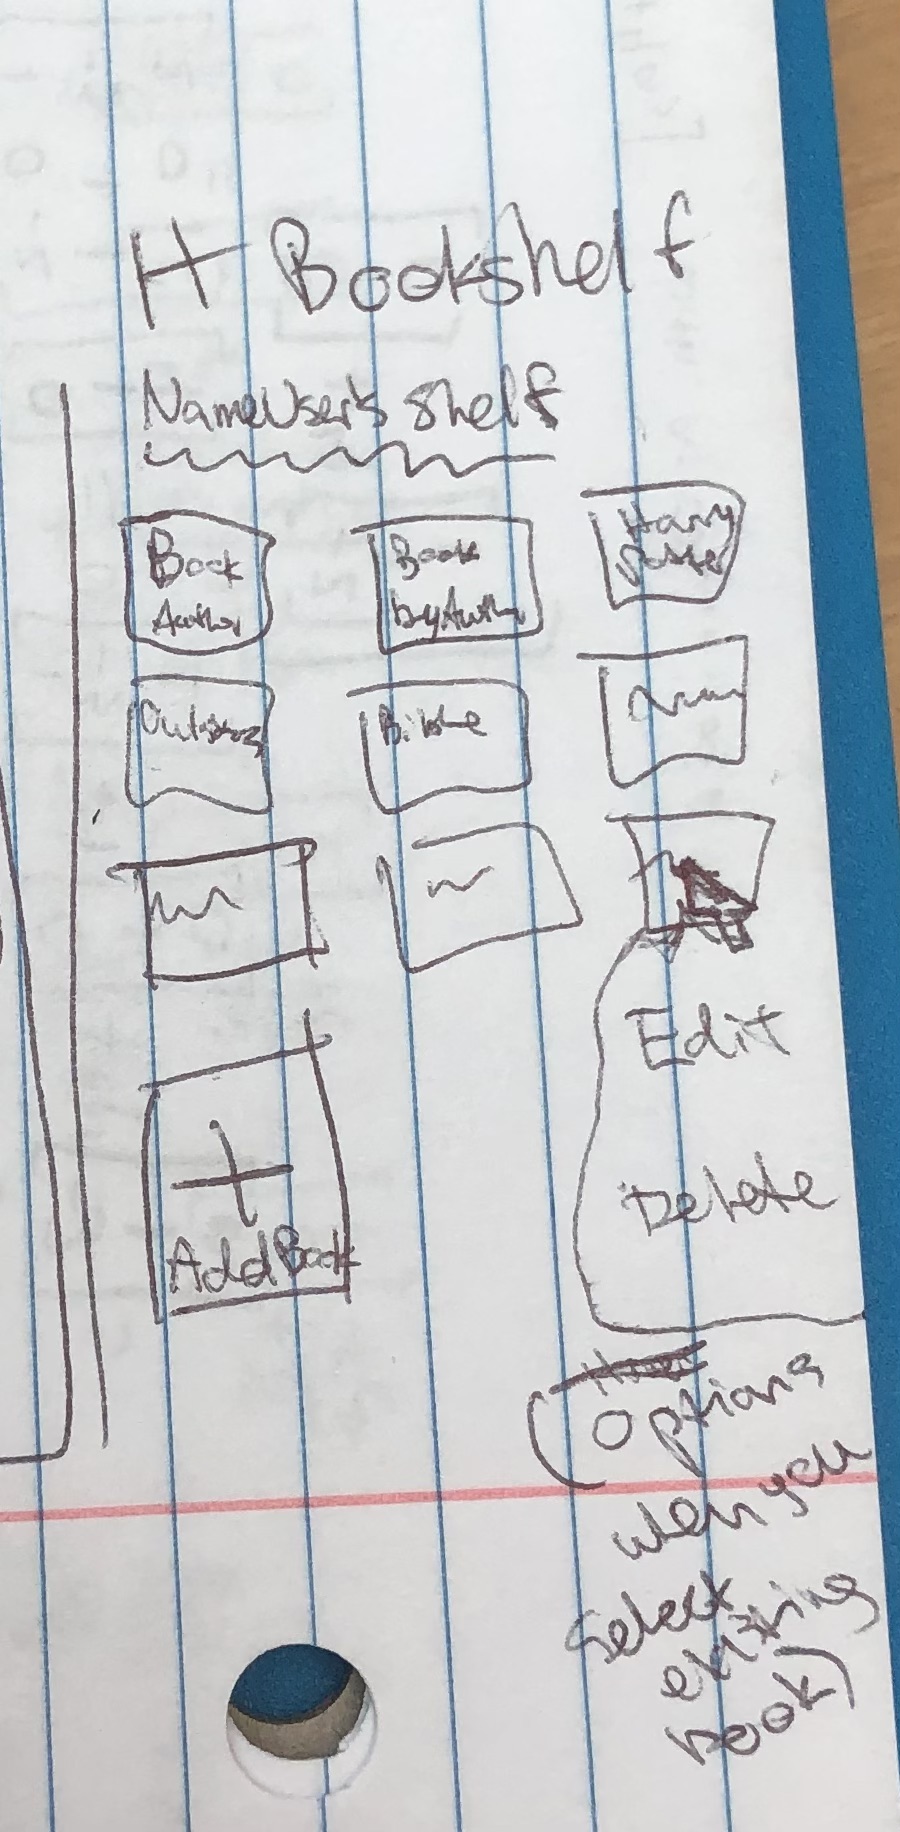 H Bookshelf
NameUser's shelf
Book
Author
Book
by Author
Harry
Potter
Bible
Edit
Delete
+
Add Book
(Options
when you
select
existing
book)